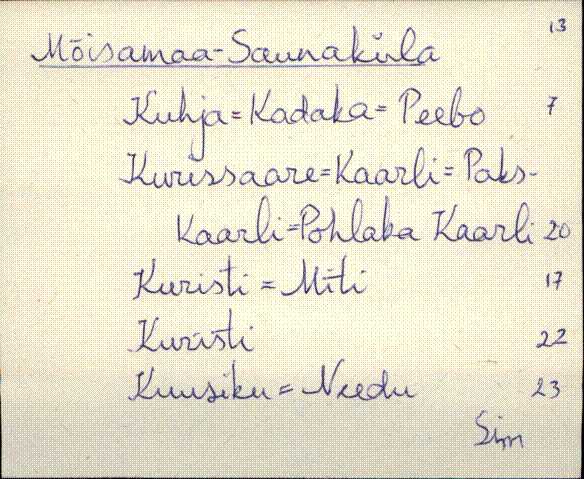 13
Mõisamaa-Saunaküla
Kuhja=Kadaka=Peebo 7
Kurissaare=Kaarli=Paks-
Kaarli=Pohlaka Kaarli 20
Kuristi=Miti 17
Kuristi 22
Kuusiku=Needu 23
Sim